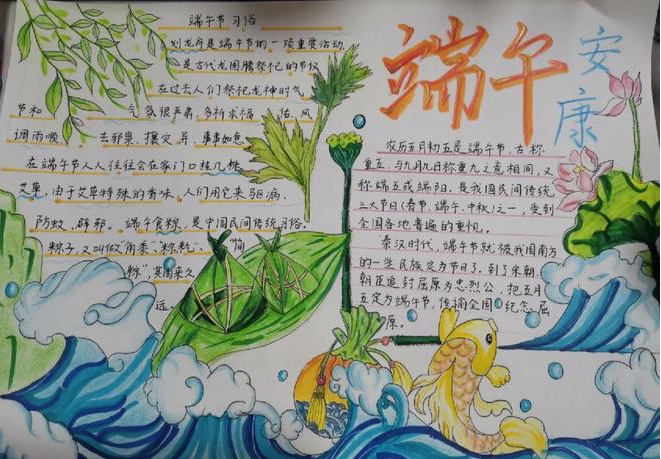 端午节习俗
划龙舟是端午节的一项重要活动
是古代龙图腾祭祀的节仪
在过去人们祭祀龙神时气
节和 气氛很严肃，多祈求福 佑、风
调雨顺、去邪祟、攘灾异、事事如意
在端午节人人往往会在家门口挂几株
艾草，由于艾草特殊的香味，人们用它来驱病、
防蚊、辟邪。端午食粽，是中国民间传统习俗。
粽子，又叫做“角黍”、“粽籺”、“筒
粽”，其由来久
远
端午
安康
农历五月初五是端午节，古称
重五，与九月九日称重九之意相同，又
称端五或端阳。是我国民间传统
三大节日（春节、端午、中秋）之一，受到
全国各地普遍的重视。
秦汉时代，端午节就被我国南方
的一些民族定为节日了。到了宋朝，
朝臣追封屈原为忠烈公，把五月
五定为端午节，传谕全国，纪念屈
原。